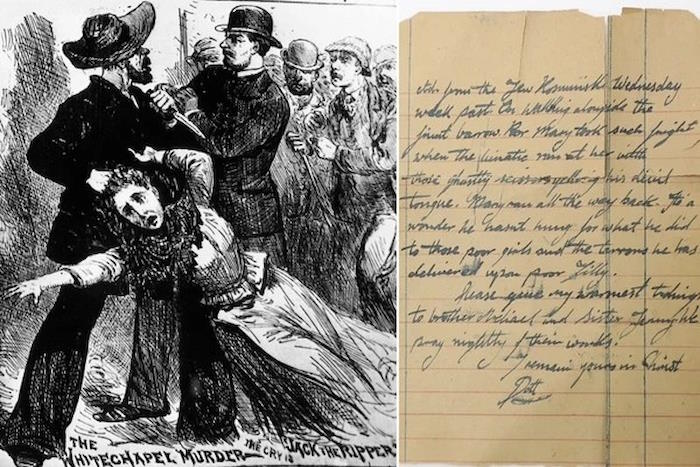 THE
WHITECHAPEL MURDER
THE CRY IS
"JACK THE RIPPER"
from the Jew Kosminski Wednesday
week past. On walking alongside the
barrow. Mary took such fright
when the lunatic ran at her with
those ghastly his devil
tongue. Mary ran all the way back. Its a
wonder he hasnt hung for what he did
to those poor girls and the terrors he has
delivered upon poor Tilly.
Please give my warmest tidings
to brother Michael and Sister
pray nightly of their wounds.
I remain yours in Christ